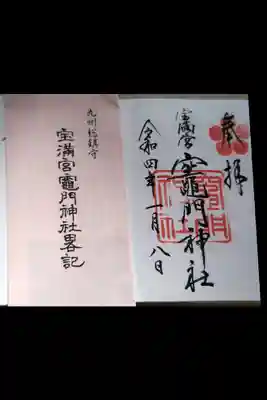 奉拝
宝満宮 竈門神社
令和四年一月八日
九州総鎮守
宝満宮竈門神社畧記